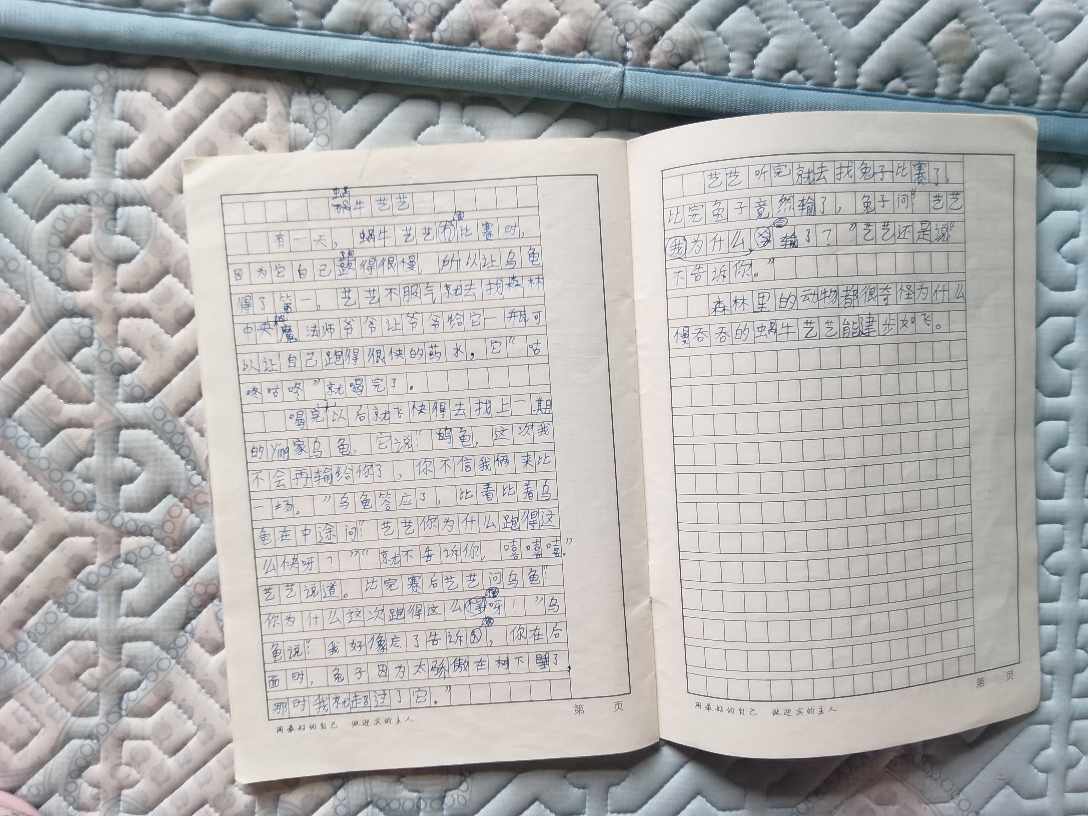 蜗
蜗牛艺艺
有一天，蜗牛艺艺在比赛时，
因为它自己跑得很慢，所以让乌龟
得了第一。艺艺不服气就去找森林
中央魔法师爷爷让爷爷给它一瓶可
以让自己跑得很快的药水。它“咕
咚咕咚”就喝完了。
喝完以后就飞快得去找上一期
的yíng家乌龟，它说“乌龟，这次我
不会再输给你了，你不信我俩来比
一场。”乌龟答应了，比着比着乌
龟在中途问“艺艺你为什么跑得这
么快呀？”“就不告诉你，嘻嘻嘻。”
艺艺说道。比完赛后艺艺问乌龟“
你为什么这次跑得这么慢呀！”乌
龟说“我好像忘了告诉，你在后
面时，兔子因为太骄傲在树下睡了，
那时我就超过了它。”
第 页
用最好的自己 做迎宾的主人
艺艺听完就去找兔子比赛了，
比完兔子竟然输了，兔子问“艺艺
我为什么输了？”艺艺还是说“
不告诉你。”
森林里的动物都很奇怪为什么
慢吞吞的蜗牛艺艺能健步如飞。
第 页
用最好的自己 做迎宾的主人